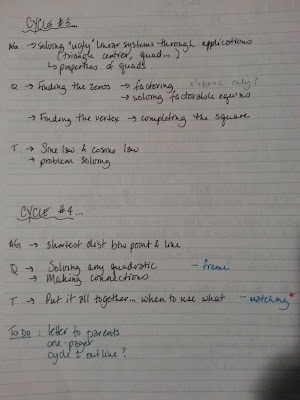 CYCLE #3...
AG → solving "ugly" linear systems through applications
(triangle centres, quad...)
↳ properties of quads
Q → finding the zeros → factoring x²+bx+c only?
→ solving factorable eq'ns
→ finding the vertex → completing the square
T → Sine law & cosine law
→ problem solving
CYCLE #4...
AG → shortest dist btw point & line
Q → Solving any quadratic - frame
→ Making connections
T → Put it all together... when to use what - matching*
TO DO: letter to parents
one-pager
cycle 1 outline?